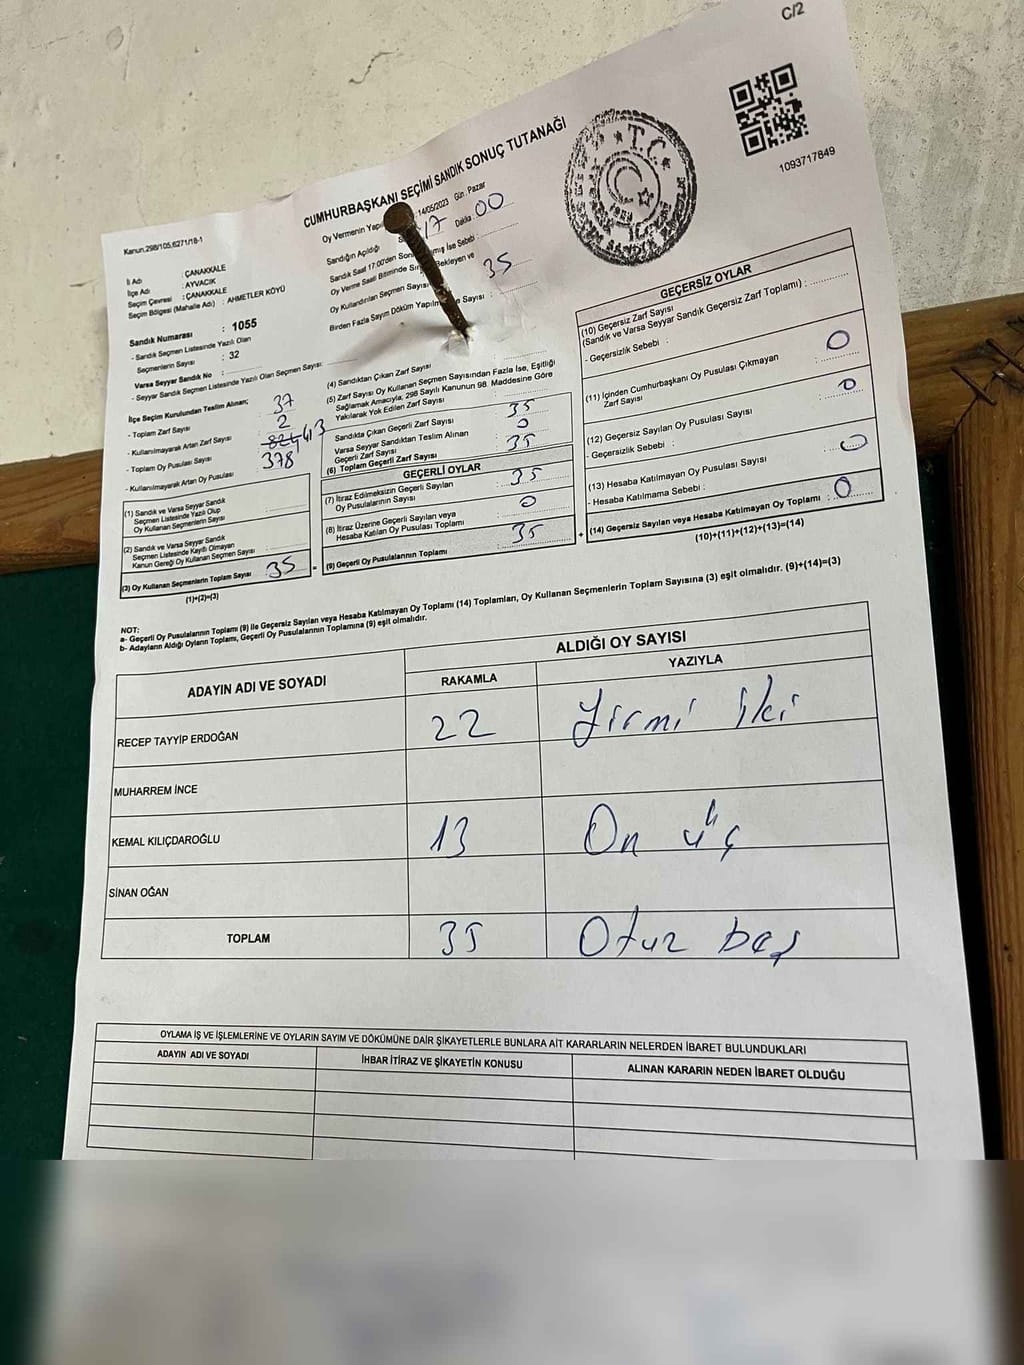 C/2
1093717849
CUMHURBAŞKANI SEÇİMİ SANDIK SONUÇ TUTANAĞI
Kanun.298/105,6271/18-1
İl Adı : ÇANAKKALE
İlçe Adı : AYVACIK
Seçim Çevresi : ÇANAKKALE
Seçim Bölgesi (Mahalle Adı) : AHMETLER KÖYÜ
Sandık Numarası : 1055
- Sandık Seçmen Listesinde Yazılı Olan
Seçmenlerin Sayısı : 32
Varsa Seyyar Sandık No :
- Seyyar Sandık Seçmen Listesinde Yazılı Olan Seçmen Sayısı:
İlçe Seçim Kurulundan Teslim Alınan;
- Toplam Zarf Sayısı 37
- Kullanılmayarak Artan Zarf Sayısı 2
- Toplam Oy Pusulası Sayısı 413
- Kullanılmayarak Artan Oy Pusulası 378
(1) Sandık ve Varsa Seyyar Sandık
Seçmen Listesinde Yazılı Olup
Oy Kullanan Seçmenlerin Sayısı
(2) Sandık ve Varsa Seyyar Sandık
Seçmen Listesinde Kayıtlı Olmayan
Kanun Gereği Oy Kullanan Seçmen Sayısı
(3) Oy Kullanan Seçmenlerin Toplam Sayısı 35
(1)+(2)=(3)
Oy Vermenin 14/05/2023 Gün : Pazar
Sandığın Açıldığı 17 Dakika : 00
Sandık Saat 17:00'den İse Sebebi :
Oy Verme Saati Bitiminde Bekleyen ve
Oy Kullandırılan Seçmen Sayısı 35
Birden Fazla Sayım Döküm Sayısı :
(4) Sandıktan Çıkan Zarf Sayısı
(5) Zarf Sayısı Oy Kullanan Seçmen Sayısından Fazla İse, Eşitliği
Sağlamak Amacıyla; 298 Sayılı Kanunun 98. Maddesine Göre
Yakılarak Yok Edilen Zarf Sayısı
Sandıkta Çıkan Geçerli Zarf Sayısı 35
Varsa Seyyar Sandıktan Teslim Alınan
Geçerli Zarf Sayısı 0
(6) Toplam Geçerli Zarf Sayısı 35
GEÇERLİ OYLAR
(7) İtiraz Edilmeksizin Geçerli Sayılan
Oy Pusulalarının Sayısı 35
(8) İtiraz Üzerine Geçerli Sayılan veya
Hesaba Katılan Oy Pusulası Toplamı 0
(9) Geçerli Oy Pusulalarının Toplamı 35
GEÇERSİZ OYLAR
(10) Geçersiz Zarf Sayısı
(Sandık ve Varsa Seyyar Sandık Geçersiz Zarf Toplamı) :
- Geçersizlik Sebebi : 0
(11) İçinden Cumhurbaşkanı Oy Pusulası Çıkmayan
Zarf Sayısı 0
(12) Geçersiz Sayılan Oy Pusulası Sayısı
- Geçersizlik Sebebi : 0
(13) Hesaba Katılmayan Oy Pusulası Sayısı
- Hesaba Katılmama Sebebi :
(14) Geçersiz Sayılan veya Hesaba Katılmayan Oy Toplamı : 0
(10)+(11)+(12)+(13)=(14)
NOT:
a- Geçerli Oy Pusulalarının Toplamı (9) ile Geçersiz Sayılan veya Hesaba Katılmayan Oy Toplamı (14) Toplamları, Oy Kullanan Seçmenlerin Toplam Sayısına (3) eşit olmalıdır. (9)+(14)=(3)
b- Adayların Aldığı Oyların Toplamı, Geçerli Oy Pusulalarının Toplamına (9) eşit olmalıdır.
ADAYIN ADI VE SOYADI
ALDIĞI OY SAYISI
RAKAMLA YAZIYLA
RECEP TAYYİP ERDOĞAN 22 Yirmi iki
MUHARREM İNCE
KEMAL KILIÇDAROĞLU 13 On üç
SİNAN OĞAN
TOPLAM 35 Otuz beş
OYLAMA İŞ VE İŞLEMLERİNE VE OYLARIN SAYIM VE DÖKÜMÜNE DAİR ŞİKAYETLERLE BUNLARA AİT KARARLARIN NELERDEN İBARET BULUNDUKLARI
ADAYIN ADI VE SOYADI İHBAR İTİRAZ VE ŞİKAYETİN KONUSU ALINAN KARARIN NEDEN İBARET OLDUĞU